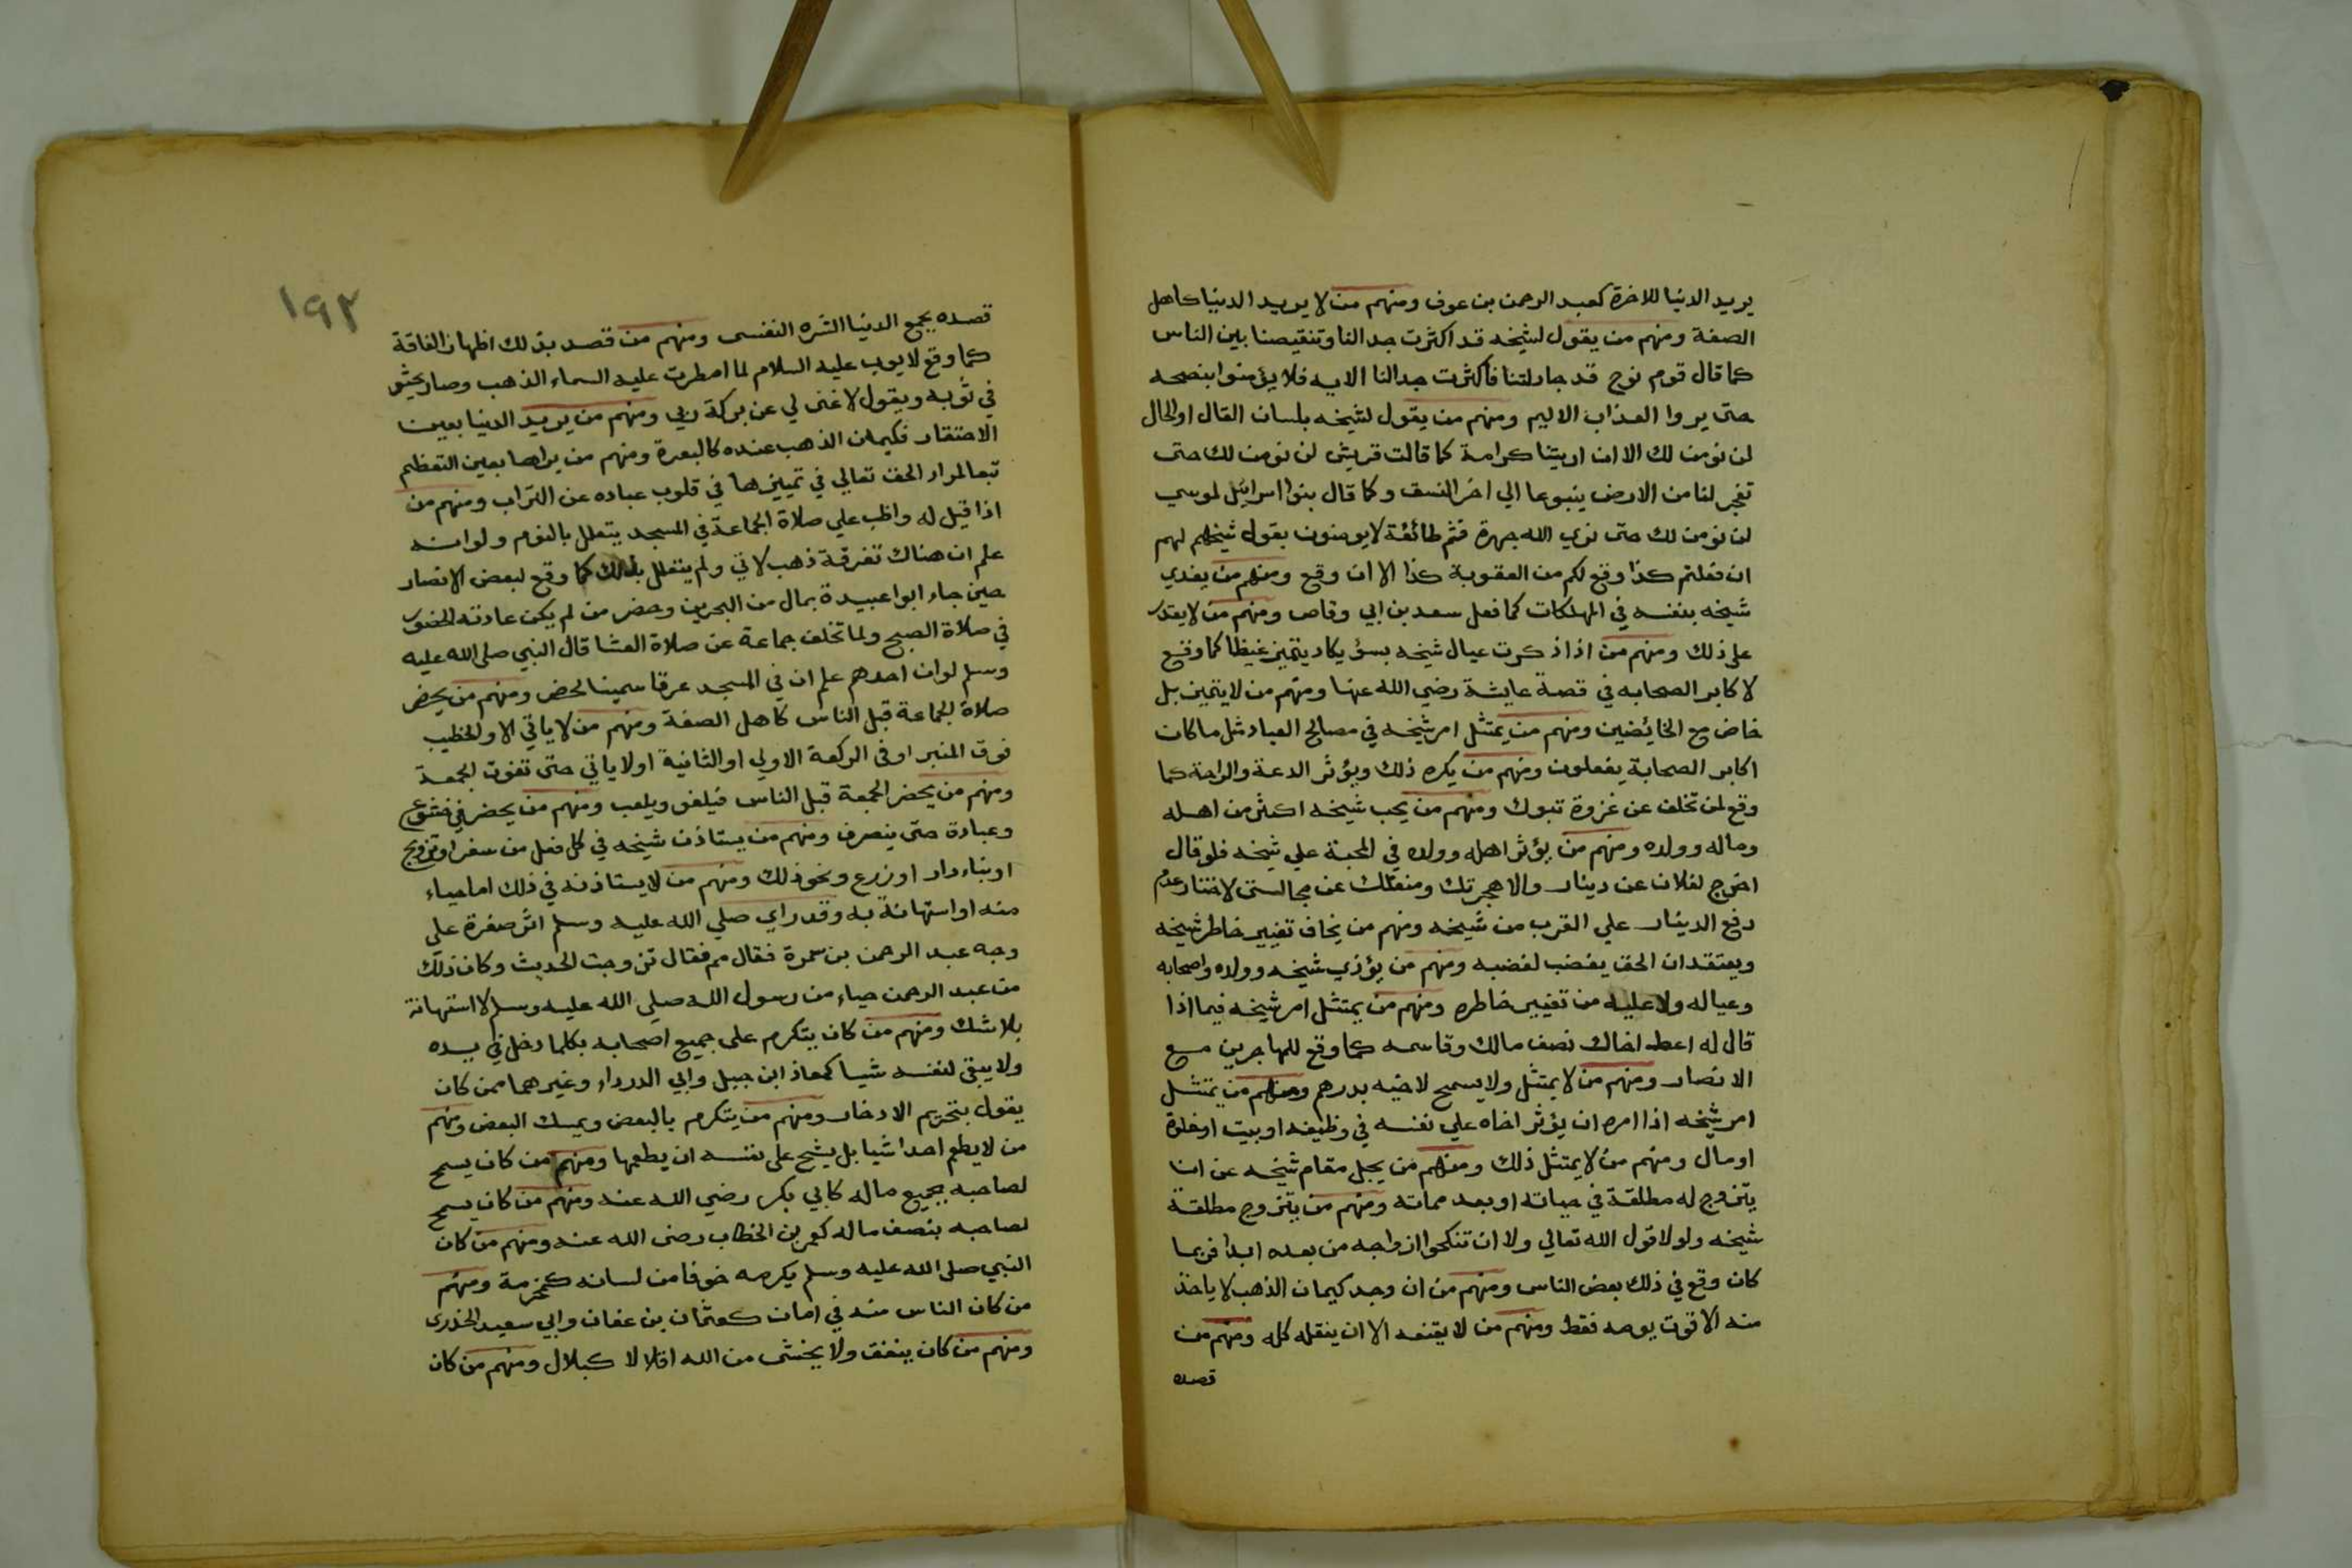 يريد الدنيا للاخرة كعبد الرحمن بن عوف ومنهم من لا يريد الدنيا كاهل
الصفة ومنهم من يقول لشيخه قد اكثرت جدالنا وتنقيصنا بين الناس
كما قال قوم نوح قد جادلتنا فاكثرت جدالنا الايه فلا يؤمنوا بنصحه
حتى يروا العذاب الاليم ومنهم من يقول لشيخه بلسان القال او الحال
لن نومن لك الا ان اريتنا كرامة كما قالت قريش لن نومن لك حتى
تفجر لنا من الارض ينبوعا الي اخر النسق وكما قال بنوا اسرائيل لموسي
لن نومن لك حتى نري الله جهرة فثم طائفة لا يومنون بقول شيخهم لهم
ان فعلتم كذا وقع لكم من العقوبة كذا الا ان وقع ومنهم من يفدي
شيخه بنفسه في المهلكات كما فعل سعد بن ابي وقاص ومنهم من لا يقدر
على ذلك ومنهم من اذا ذكرت عيال شيخه بسؤ يكاد يتميز غيظا كما وقع
لاكابر الصحابه في قصة عايشة رضي الله عنها ومنهم من لا يتميز بل
خاض مع الخائضين ومنهم من يمتثل امر شيخه في مصالح العباد مثل ما كان
اكابر الصحابة يفعلون ومنهم من يكره ذلك ويؤثر الدعة والراحة كما
وقع لمن تخلف عن غزوة تبوك ومنهم من يحب شيخه اكثر من اهله
وماله وولده ومنهم من يؤثر اهله وولده في المحبة علي شيخه فلو قال
اخرج لفلان عن دينار والا هجرتك ومنعتك عن مجالستي لاختار عدم
دفع الدينار علي القرب من شيخه ومنهم من يخاف تغيير خاطر شيخه
ويعتقد ان الحق يغضب لغضبه ومنهم من يؤذي شيخه وولده واصحابه
وعياله ولا عليه من تغيير خاطره ومنهم من يمتثل امر شيخه فيما اذا
قال له اعط اخاك نصف مالك وقاسمه كما وقع للمهاجرين مع
الانصار ومنهم من لا يمتثل ولا يسمح لاخيه بدرهم ومنهم من يمتثل
امر شيخه اذا امره ان يؤثر اخاه علي نفسه في وظيفه او بيت او خلوة
او مال ومنهم من لا يمتثل ذلك ومنهم من يجل مقام شيخه عن ان
يتزوج له مطلقة في حياته او بعد مماته ومنهم من يتزوج مطلقة
شيخه ولولا قول الله تعالي ولا ان تنكحوا ازواجه من بعده ابدا فربما
كان وقع في ذلك بعض الناس ومنهم من ان وجد كيمان الذهب لا ياخذ
منه الا قوت يومه فقط ومنهم من لا يقنعه الا ان ينقله كله ومنهم من
قصده
١٩٢
قصده بجمع الدنيا الشره النفسى ومنهم من قصد بذلك اظهار الفاقة
كما وقع لايوب عليه السلام لما امطرت عليه السماء الذهب وصار يحثو
في ثوبه ويقول لا غنى لي عن بركة ربي ومنهم من يريد الدنيا بعين
الاحتقار فكيمان الذهب عنده كالبعرة ومنهم من يراها بعين التعظم
تبعا لمراد الحق تعالي في تمييزها في قلوب عباده عن التراب ومنهم من
اذا قيل له واظب علي صلاة الجماعة في المسجد يتعلل بالنوم ولو انه
علم ان هناك تفرقة ذهب لاتي ولم يتعلل بذلك كما وقع لبعض الانصار
حين جاء ابوا عبيدة بمال من البحرين وحضر من لم يكن عادته الحضور
في صلاة الصبح ولما تخلف جماعة عن صلاة العشا قال النبي صلى الله عليه
وسلم لو ان احدهم علم ان في المسجد عرقا سمينا لحضر ومنهم من يحضر
صلاة الجماعة قبل الناس كاهل الصفة ومنهم من لا ياتي الا والخطيب
فوق المنبر او في الركعة الاولي او الثانية او لا ياتي حتى تفوت الجمعة
ومنهم من يحضر الجمعة قبل الناس فيلغو ويلعب ومنهم من يحضر في خشوع
وعبادة حتى ينصرف ومنهم من يستاذن شيخه في كل فعل من سفر او تزويج
او بناء دار او زرع ونحو ذلك ومنهم من لا يستاذنه في ذلك اما حياء
منه او استهانة به وقد راي صلي الله عليه وسلم اثر صفرة على
وجه عبد الرحمن بن سمرة فقال مم فقال تزوجت الحديث وكان ذلك
من عبد الرحمن حياء من رسول الله صلي الله عليه وسلم لا استهانة
بلا شك ومنهم من كان يتكرم على جميع اصحابه بكلما دخل في يده
ولا يبقى لنفسه شيا كمعاذ ابن جبل وابي الدرداء وغيرهما ممن كان
يقول بتحريم الادخار ومنهم من يتكرم بالبعض ويمسك البعض ومنهم
من لا يطعم احدا شيا بل يشح على نفسه ان يطعمها ومنهم من كان يسمح
لصاحبه بجميع ماله كابي بكر رضي الله عنه ومنهم من كان يسمح
لصاحبه بنصف ماله كعمر بن الخطاب رضى الله عنه ومنهم من كان
النبي صلى الله عليه وسلم يكرمه خوفا من لسانه كمخرمة ومنهم
من كان الناس منه في امان كعثمان بن عفان وابي سعيد الخذرى
ومنهم من كان ينفق ولا يخشى من الله اقلالا كبلال ومنهم من كان